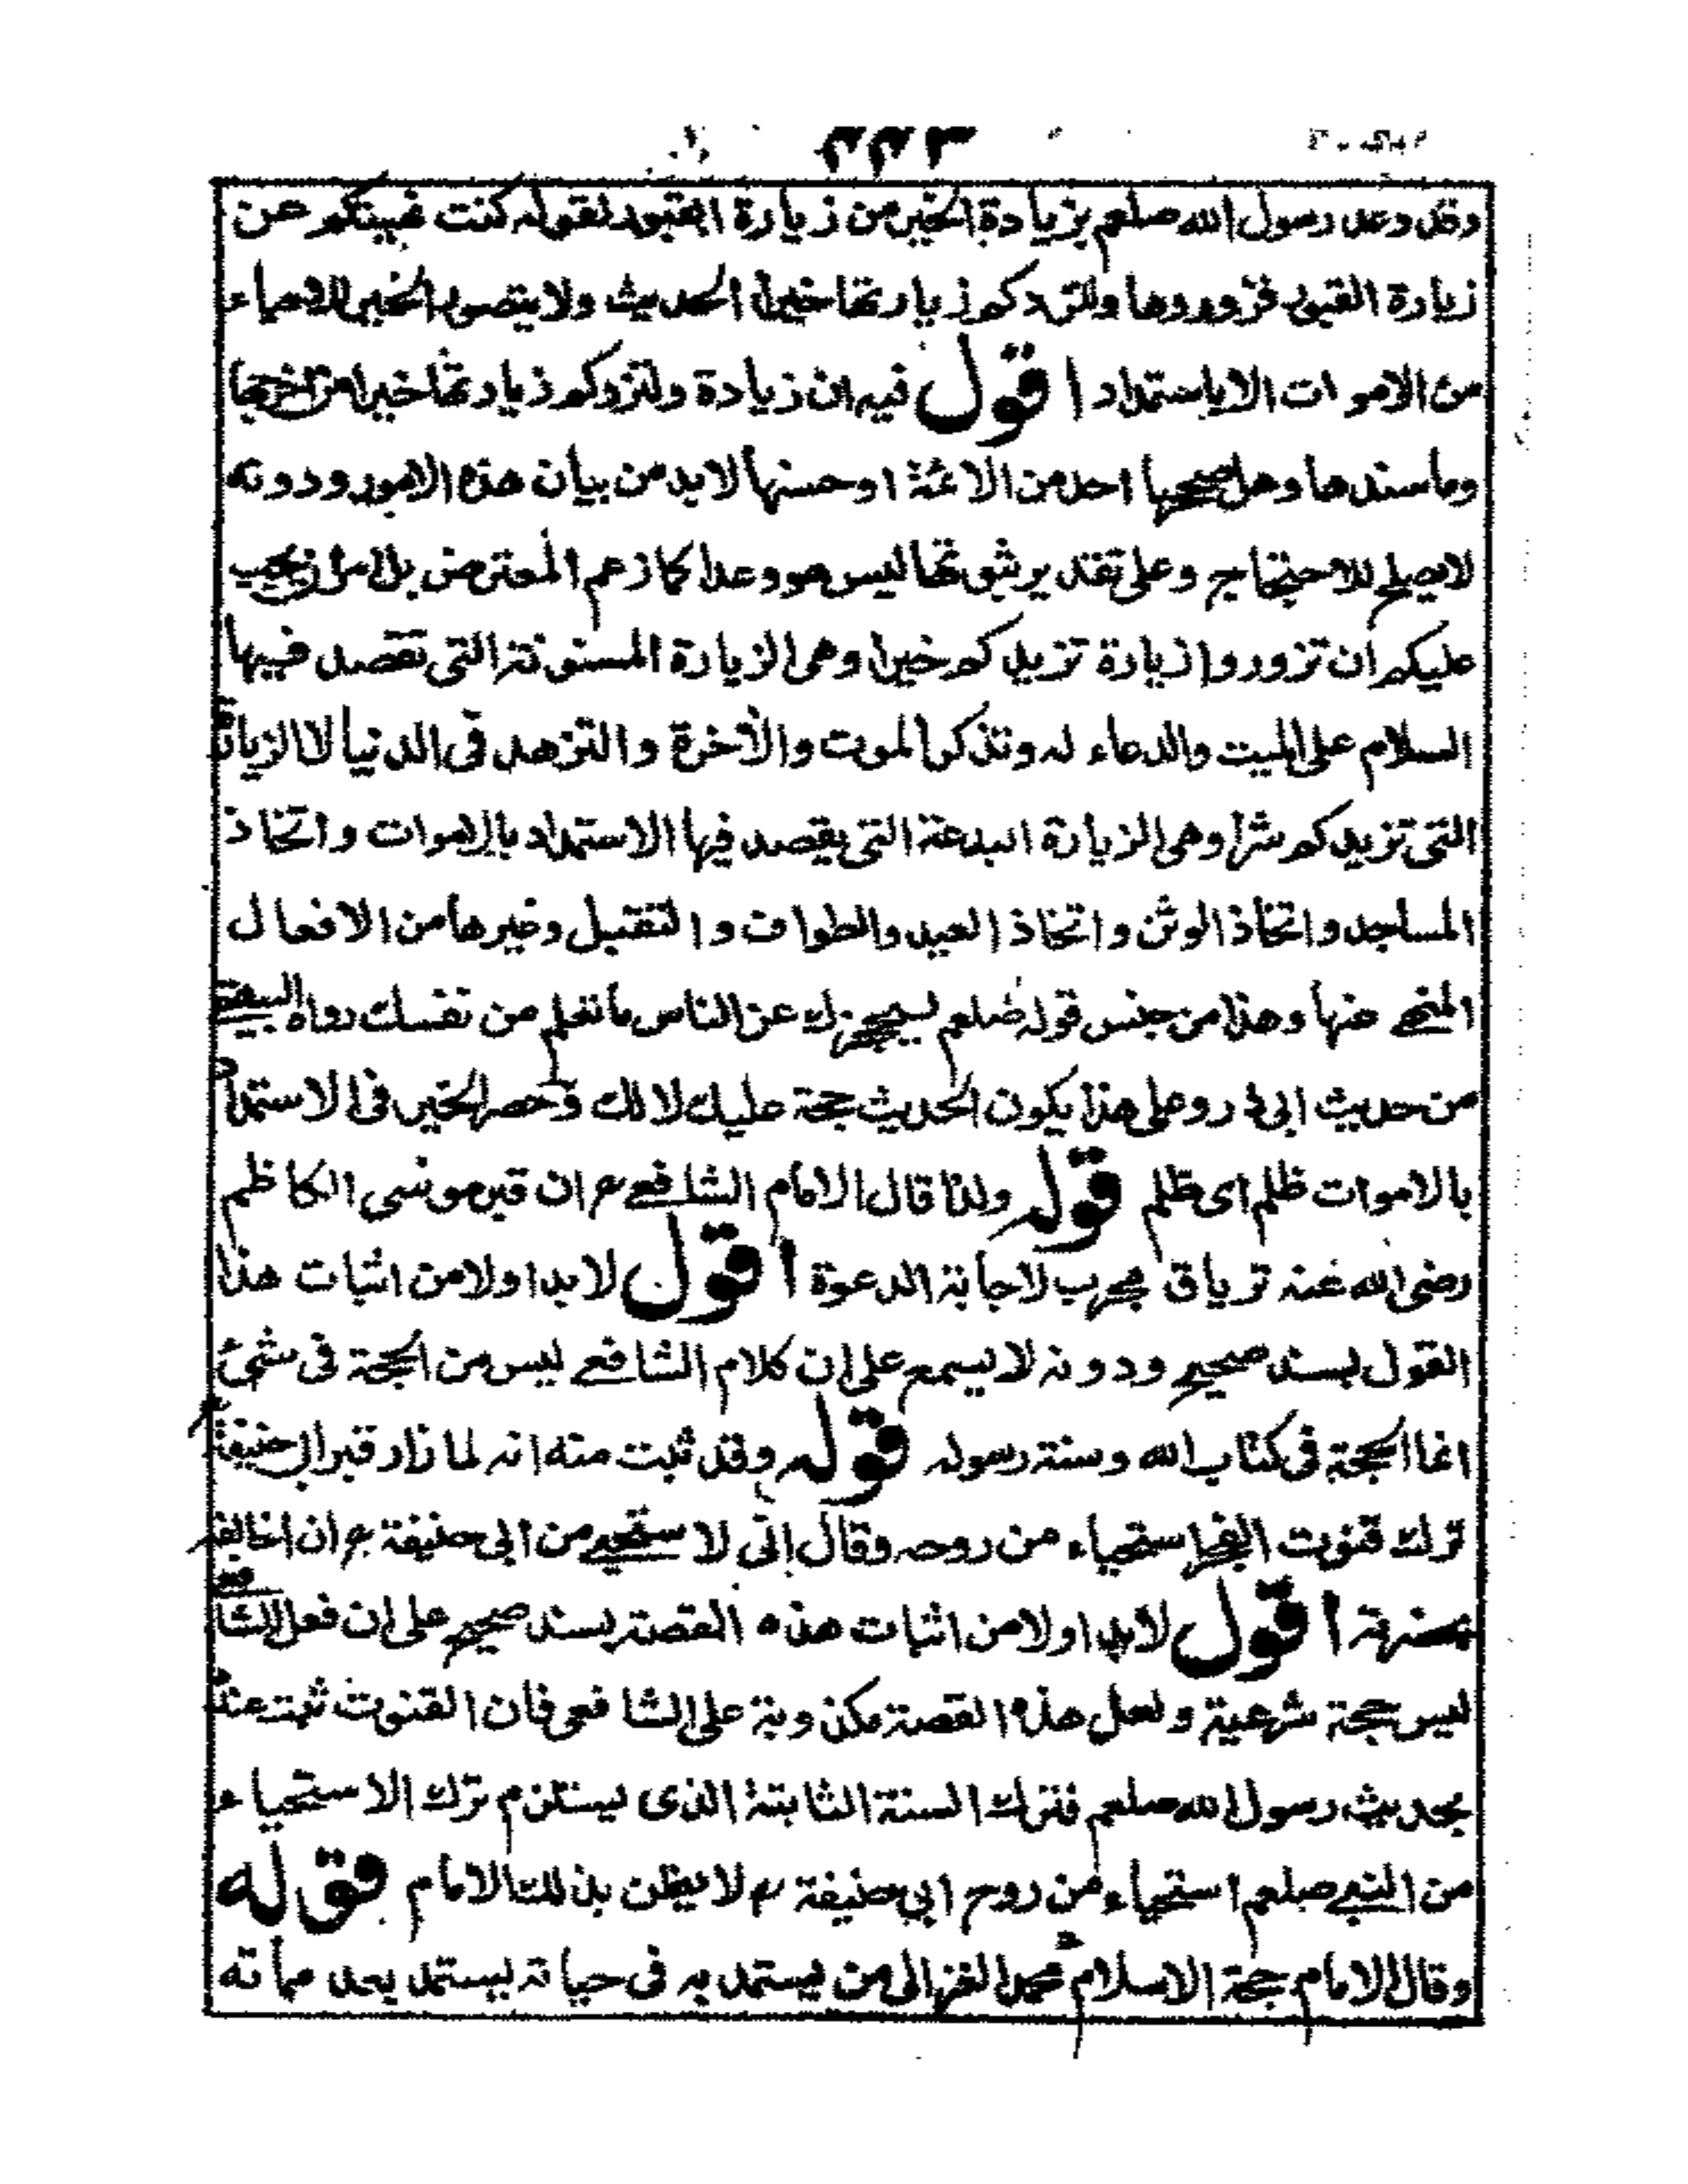 ٣٣٣
وقد وعد رسول الله صلعم بزيادة الخير من زيارة القبور لقوله كنت نهيتكم عن
زيارة القبور فزوروها ولتزدكم زيارتها خيرا الحديث ولا يتصور الخير للاحياء
من الاموات الا باستمداد اقول فيه ان زيادة ولتزدكم زيارتها خيرا من اخرجها
وما سندها وهل صححها احد من الائمة او حسنها لا بد من بيان هذه الامور ودونه
لا يصلح للاحتجاج وعلى تقدير ثبوتها ليس هو وعدا كما زعم المعترض بل امر اى يجب
عليكم ان تزوروا زيارة تزيدكم خيرا وهى الزيارة المسنونة التى تقصد فيها
السلام على الميت والدعاء له وتذكر الموت والآخرة والتزهد فى الدنيا لا الزيارة
التى تزيدكم شرا وهى الزيارة البدعة التى يقصد فيها الاستمداد بالاموات واتخاذ
المساجد واتخاذ الوثن واتخاذ العيد والطواف والتقبيل وغيرها من الافعال
المنهى عنها وهذا من جنس قوله صلعم ليحجزك عن الناس ما تعلم من نفسك رواه البيهقى
من حديث ابى ذر وعلى هذا يكون الحديث حجة عليك لا لك وحصر الخير فى الاستمداد
بالاموات ظلم اى ظلم قوله ولذا قال الامام الشافعى رح ان قبر موسى الكاظم
رضى الله عنه ترياق مجرب لاجابة الدعوة اقول لا بد اولا من اثبات هذا
القول بسند صحيح ودونه لا يسمع على ان كلام الشافعى ليس من الحجة فى شئ
انما الحجة فى كتاب الله وسنة رسوله قوله وقد ثبت منه انه لما زار قبر ابى حنيفة رح
ترك قنوت الفجر استحياء من روحه وقال انى لا ستحيى من ابى حنيفة رح ان اخالفه
بحضرته اقول لا بد اولا من اثبات هذه القصة بسند صحيح على ان فعل الشافعى
ليس حجة شرعية ولعل هذه القصة مكذوبة على الشافعى فان القنوت ثبت عنده
بحديث رسول الله صلعم فترك السنة الثابتة الذى يستلزم ترك الاستحياء
من النبى صلعم استحياء من روح ابى حنيفة رح لا يظن بذلك الامام قوله
وقال الامام حجة الاسلام محمد الغزالى من يستمد به فى حياته يستمد بعد مماته